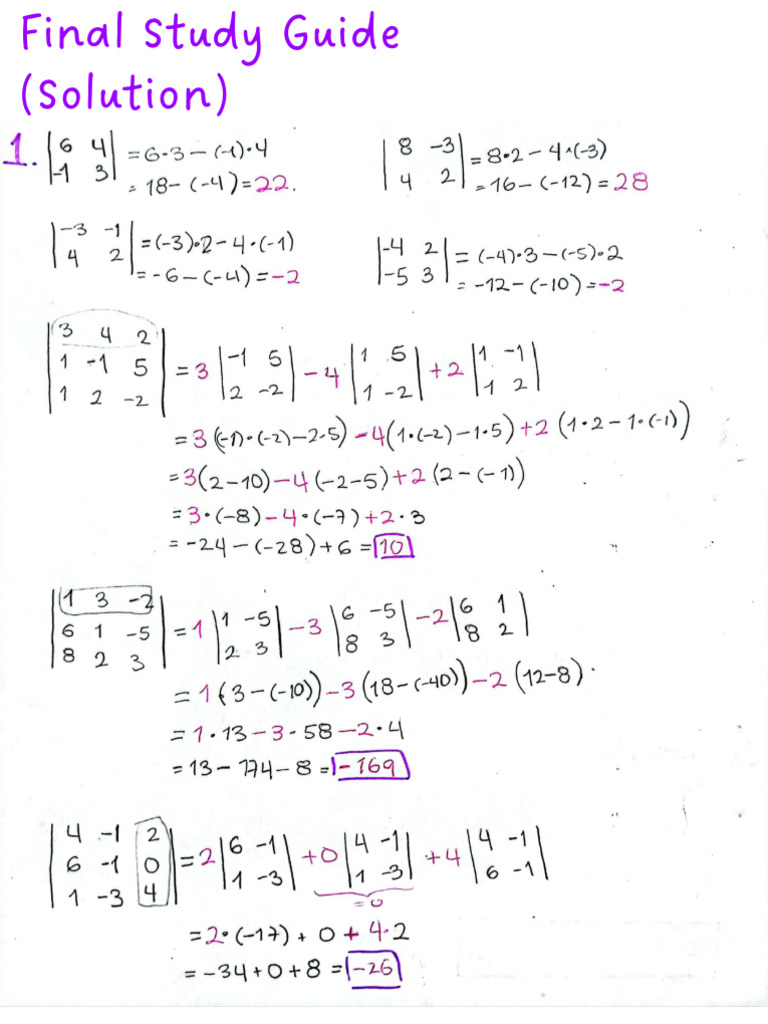 Final Study Guide
(Solution)
1. |6 4; -1 3| = 6·3 - (-1)·4
= 18 - (-4) = 22.
|8 -3; 4 2| = 8·2 - 4·(-3)
= 16 - (-12) = 28
|-3 -1; 4 2| = (-3)·2 - 4·(-1)
= -6 - (-4) = -2
|-4 2; -5 3| = (-4)·3 - (-5)·2
= -12 - (-10) = -2
|3 4 2; 1 -1 5; 1 2 -2| = 3 |-1 5; 2 -2| - 4 |1 5; 1 -2| + 2 |1 -1; 1 2|
= 3 ((-1)·(-2) - 2·5) - 4 (1·(-2) - 1·5) + 2 (1·2 - 1·(-1))
= 3(2-10) - 4(-2-5) + 2(2-(-1))
= 3·(-8) - 4·(-7) + 2·3
= -24 - (-28) + 6 = 10
|1 3 -2; 6 1 -5; 8 2 3| = 1 |1 -5; 2 3| - 3 |6 -5; 8 3| - 2 |6 1; 8 2|
= 1(3-(-10)) - 3(18-(-40)) - 2(12-8).
= 1·13 - 3·58 - 2·4
= 13 - 174 - 8 = -169
|4 -1 2; 6 -1 0; 1 -3 4| = 2 |6 -1; 1 -3| + 0 |4 -1; 1 -3| + 4 |4 -1; 6 -1|
= 0
= 2·(-17) + 0 + 4·2
= -34 + 0 + 8 = -26